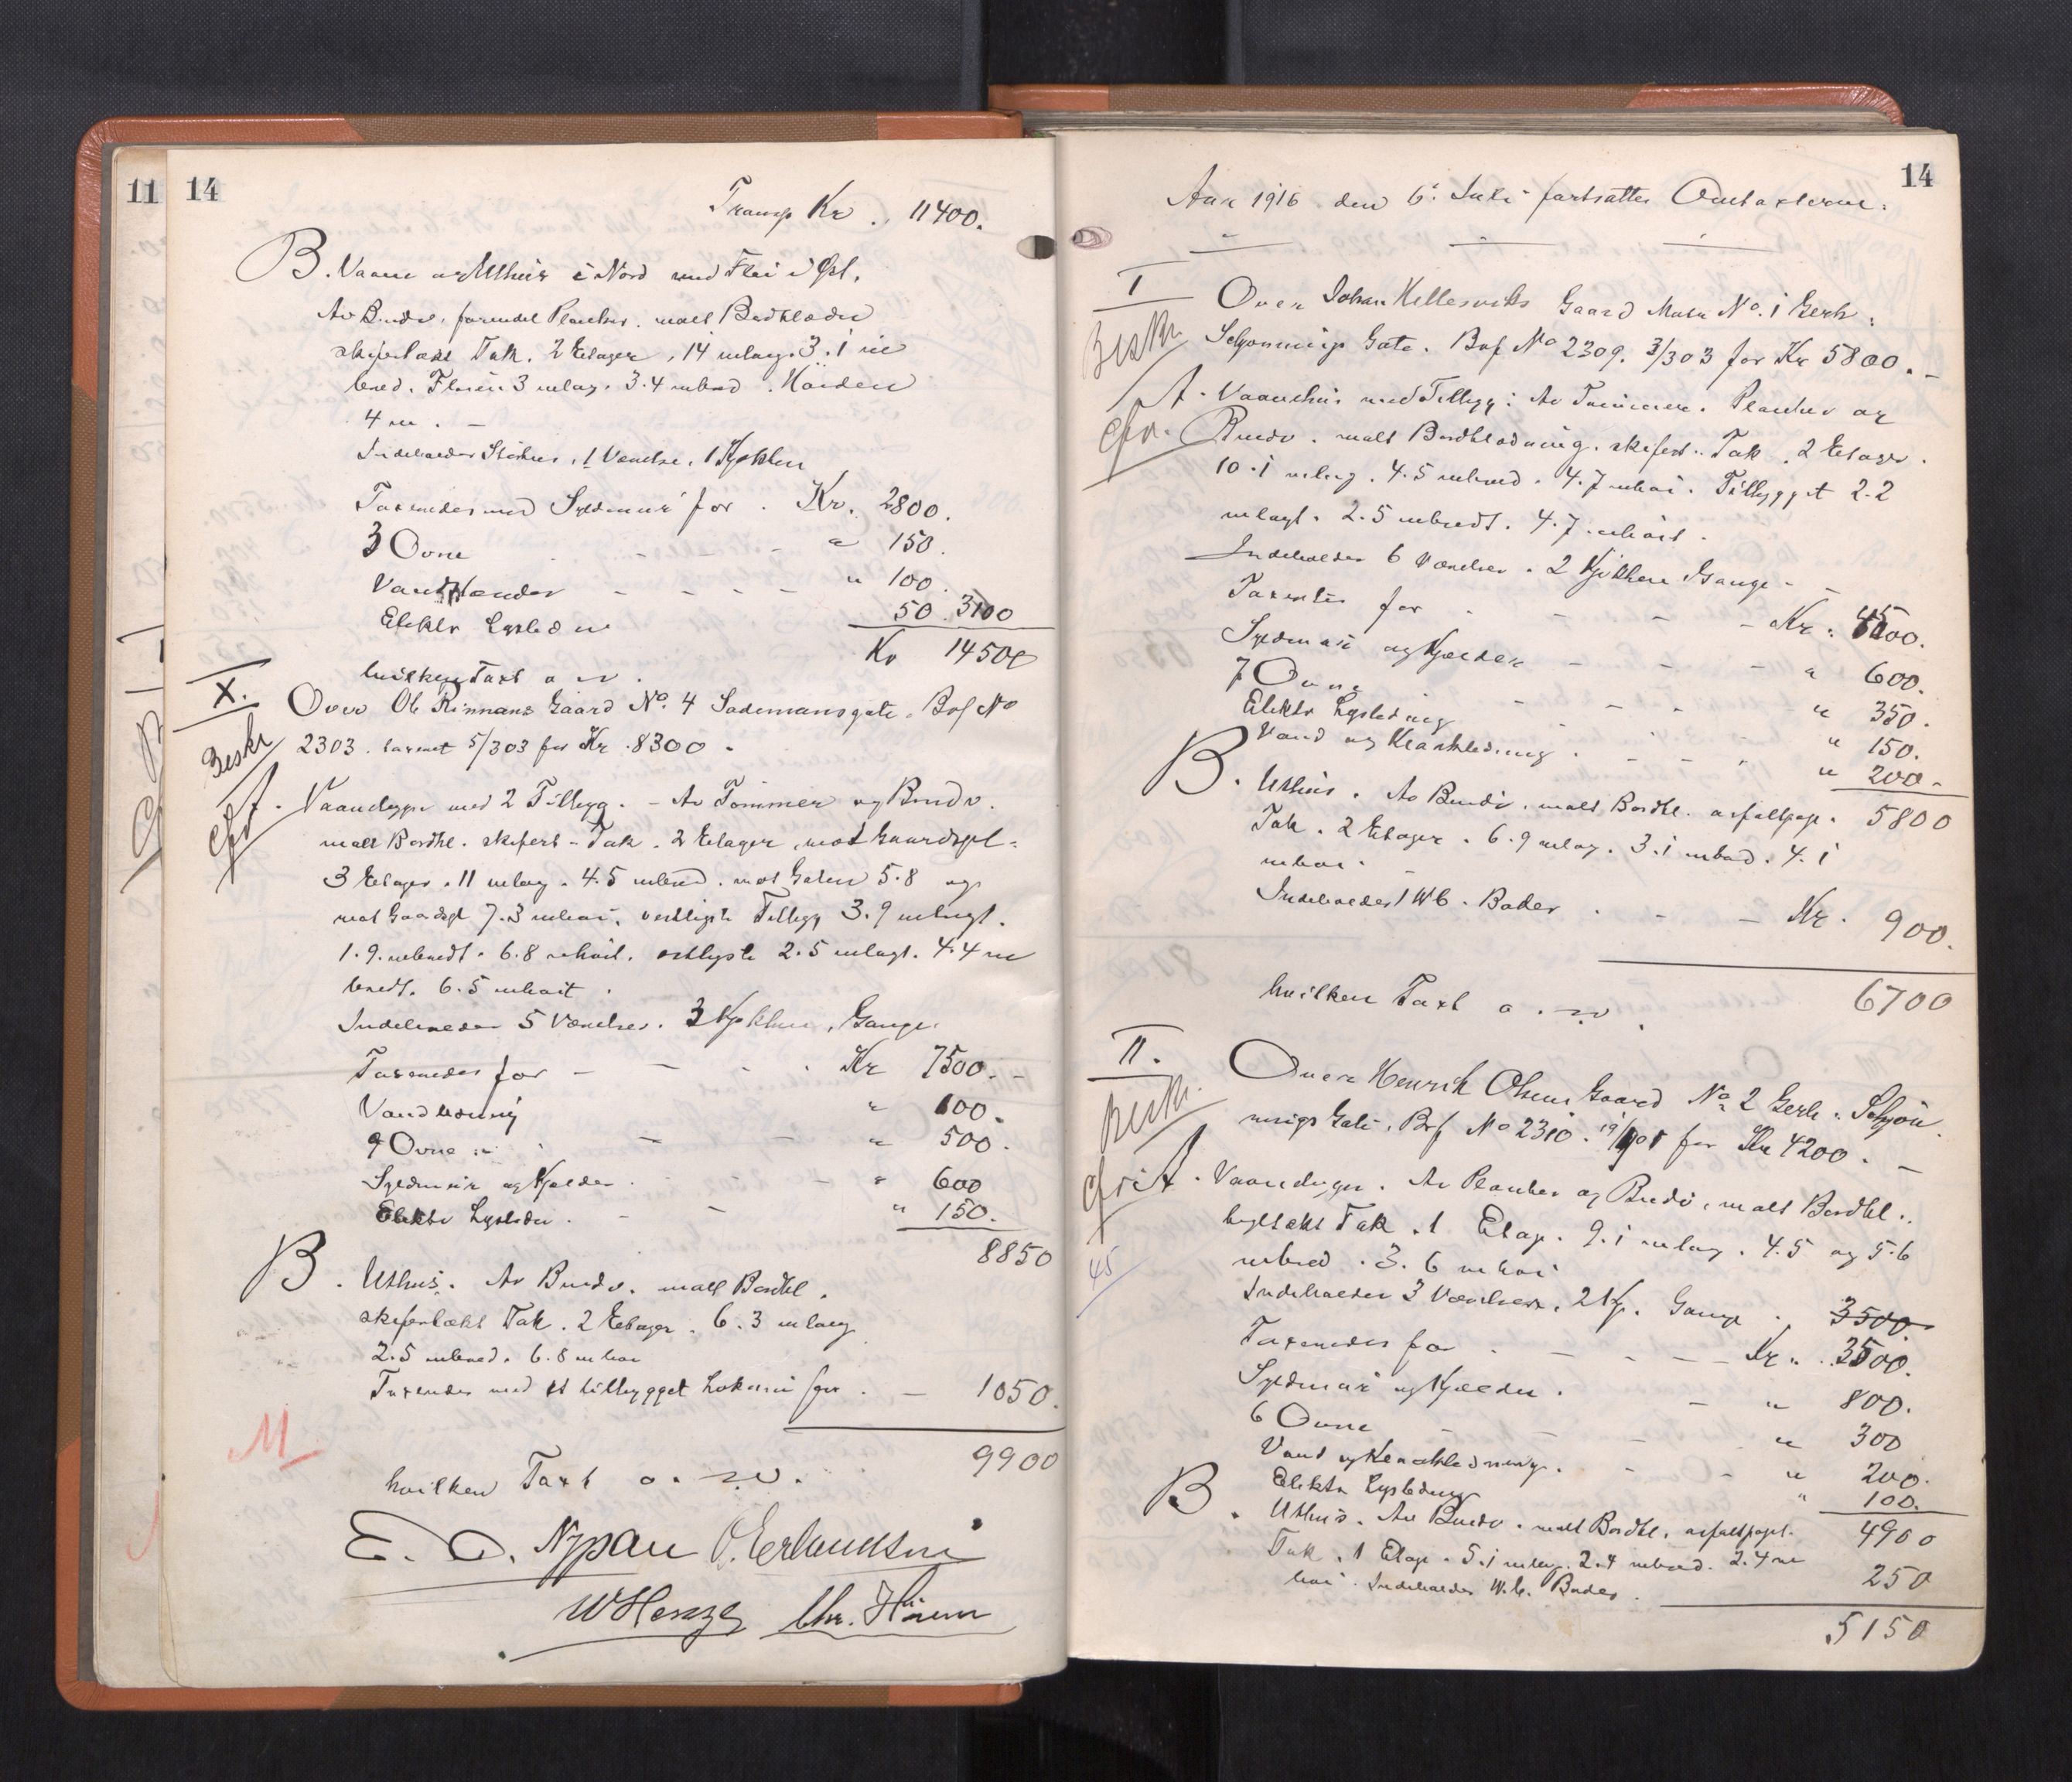 11
14
Transp Kr. 11400.
B. Vaane og Uthus i Nord med Fløi i Øst,
Av Bindv. forendel Planker. malt Bordklædn
skifertækt Tak. 2 Etager, 14 mlang. 3.1 m
bred. Fløien 3 mlang. 3.4 mbred. Høiden
4 m. -
Indeholder Stikhus, 1 Værelse, 1 Kjøkken
Taxeredes med Syldmur for . Kr. 2800.
3 Ovne - - - " 150.
Vandklæder - - - - " 100.
Elektr Lysledn 50. 3100
Kr 14500
hvilken Taxt o s v.
X.
Over Ole Rinnans Gaard No. 4 Sademansgate. Bof No
Beskr
2303. taxeret 5/303 for Kr. 8300.
cfr
A. Vaandygn med 2 Tilbyg. - Av Tømmer og Bindv.
malt Bordkl. skifert - Tak. 2 Etager, mot Gaardspl -
3 Etager. 11 mlang. 4.5 mbred. mot Gaten 5.8 og
mot Gaardspl 7.3 mhøi. vestligste Tilbyg 3.9 mlangt.
1.9. mbredt. 6.8 mhøit. østligste 2.5 mlangt. 4.4 m
bredt. 6.5 mhøit.
Indeholder 5 Værelser. 3 Kjøkken, Gange.
Taxeredes for - - . . Kr 7500. -
Vandledning " 100.
9 Ovne - - " 500.
Syldmur og Kjelder . - - " 600
Elektr Lysledn. - - " 150.
8850
B. Uthus. Av Bindv. malt Bordkl.
skifertækt Tak. 2 Etager. 6.3 mlang
2.5 mbred. 6.8 mhøi
Taxeredes med et tilbygget Lokum for . - 1050.
M
9900
hvilken Taxt o. s. v.
E. O. Nypan O. Erlandsen
W Henze Chr. Hiorn
14
Aar 1916 den 6. Juli fortsattes Omtaxterne.
I
Over Johan Hellesviks Gaard Matr No. 1 Gerh.
Beskr
Schønnings Gate. Bof No 2309. 3/303 for Kr 5800. -
cfr.
A. Vaanehus med Tilbygg: Av Tømmer. Planker og
Bindv. malt Bordklædning. skifert. Tak. 2 Etager.
10.1 mlang. 4.5 mbred. 4.7 mhøi. Tilbygget 2.2
mlangt. 2.5 mbredt. 4.7 mhøit.
Indeholder 6 Værelser. 2 Kjøkken Gange - -
Taxertes for - - - - Kr. 4500.
Syldmur og Kjelder - - - " 600.
7 Ovne - - - " 350.
Elektr Lysledning " 150.
Vand og Kloakledning . - - - " 200.
5800
B. Uthus. Av Bindv. malt Bordkl. asfaltpap.
Tak. 2 Etager. 6.9 mlang. 3.1 mbred. 4.1
mhøi.
Indeholder 1 WC. Boder . - - Kr. 900.
6700
hvilken Taxt o. s. v.
II.
Over Henrik Olsens Gaard No 2 Gerh. Schjøn
Beskr.
nings Gate. Bof No 2310. 19/1905 for Kr 4200. -
cfr
A. Vaandygn. Av Planker og Bindv, malt Bordkl.
heltækt Tak. 1 Etage. 9.1 mlang. 4.5 og 5.6
45
mbred. 3.6 mhøi
Indeholder 3 Værelser, 2 Kj. Gange . 3500.
Taxeredes for . - - - - Kr. 3500.
Syldmur og Kjelder . - " 800.
6 Ovne - - - " 300
Vand og Kloakledning. - - " 200.
Elektr Lysledning " 100.
4900
B. Uthus. Av Bindv. malt Bordkl. asfaltpapt.
Tak. 1 Etage. 5.1 mlang. 2.4 mbred. 2.4 m
høi. Indeholder W.C. Boder. 250
5150